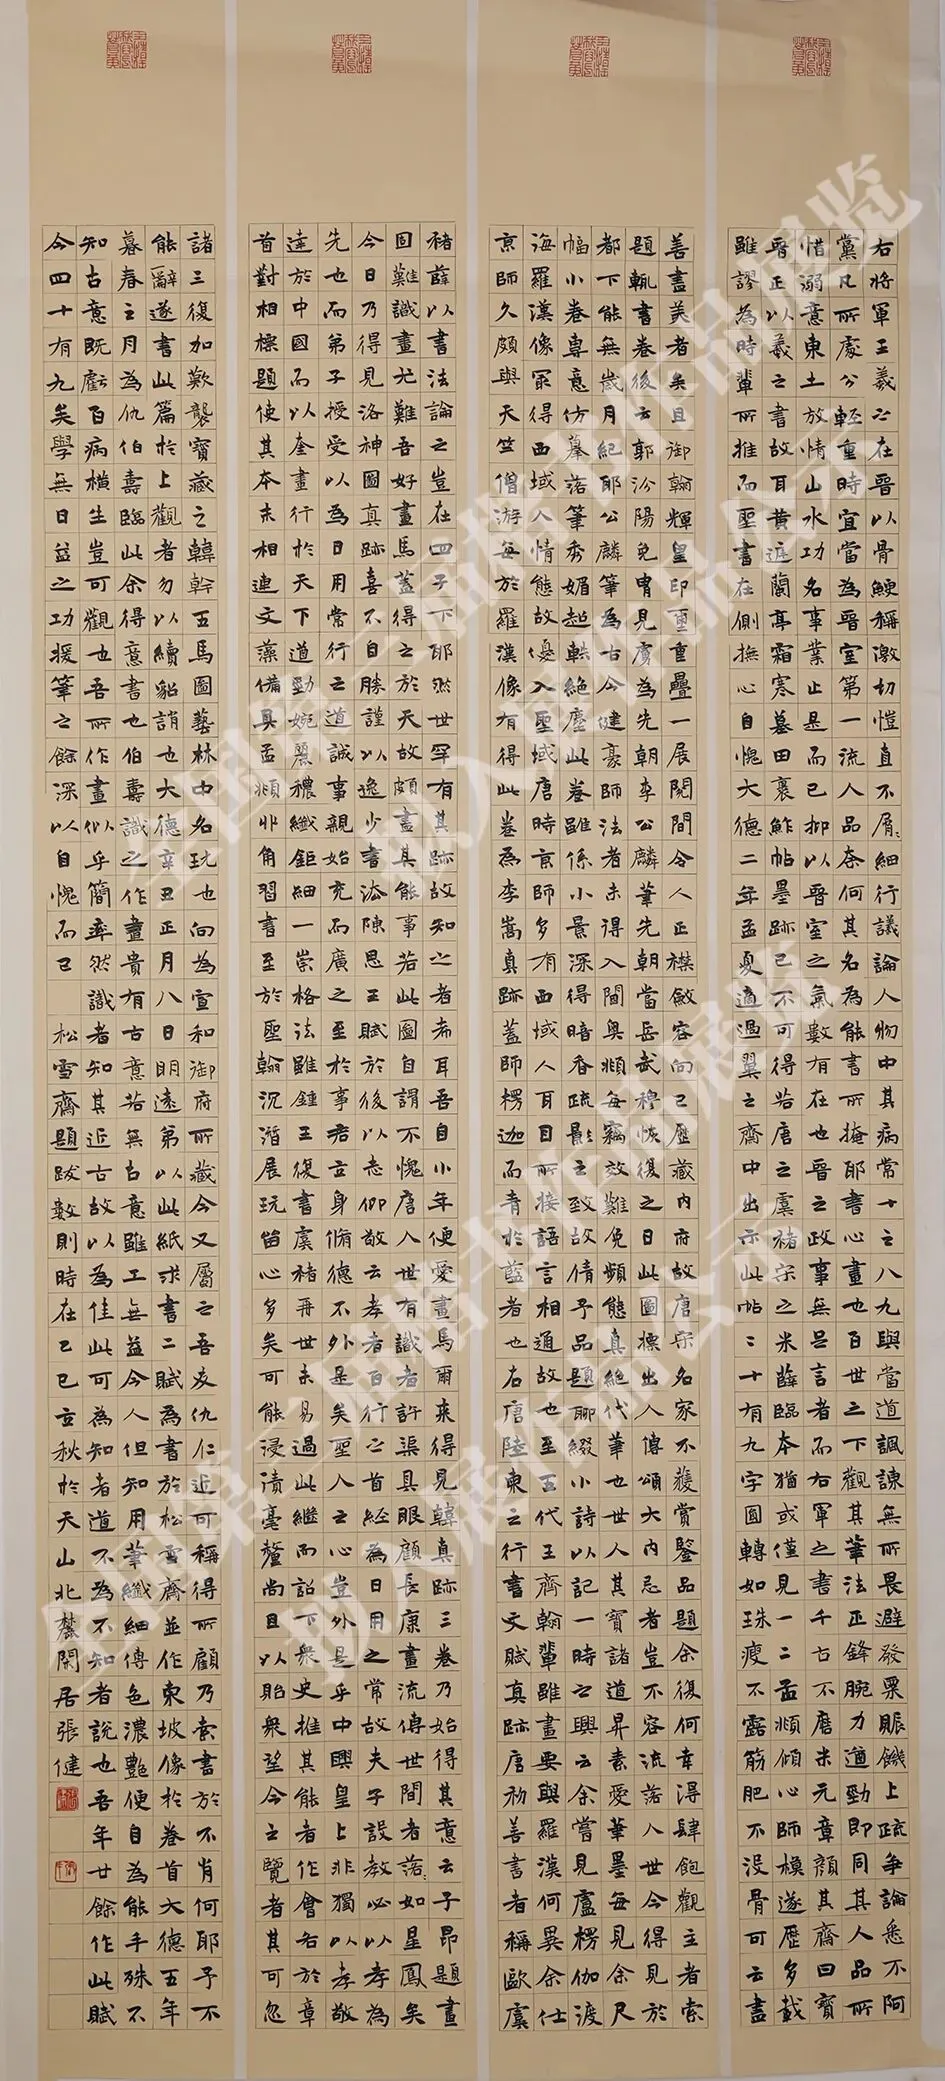 右將軍王羲之在晉以骨鯁稱激切愷直不屑〻細行議論人物中其病常十之八九與當道諷諫無所畏避發粟賑饑上疏爭論悉不阿
黨凡所處分輕重時宜當為晉室第一流人品奈何其名為能書所掩耶書心畫也百世之下觀其筆法正鋒腕力遒勁即同其人品所
惜溺意東土放情山水功名事業止是而已抑以晉室之氣數有在也晉之政事無足言者而右軍之書千古不磨米元章顏其齋曰寶
晉正以羲之書故耳黃庭蘭亭霜寒墓田裹鮓帖墨跡已不可得若唐之虞褚宋之米薛臨本猶或僅見一二孟頫傾心師模遂歷多載
雖謬為時輩所推而聖書在側撫心自愧大德二年孟夏適過翼之齋中出示此帖二十有九字圓轉如珠瘦不露筋肥不沒骨可云盡
善盡美者矣且御翰輝皇印璽重疊一展閱間令人正襟斂容向已歷藏內府故唐宋名家不獲賞鑒品題余復何幸得肆飽觀主者索
題輒書卷後云郭汾陽免冑見虜為先朝李公麟筆先朝當岳武穆恢復之日此圖標出人傳頌大內忌者豈不容流落人世今得見於
都下能無歲月紀耶公麟筆為古今健豪師法者未得入閫奧頫每竊效難免頻態真絕代筆也世人其寶諸道昇素愛筆墨每見余尺
幅小卷專意仿摹落筆秀媚超軼絕塵此卷雖係小景深得暗香疏影之致故倩予品題聊綴小詩以記一時之興云余嘗見盧楞伽渡
海羅漢像最得西域人情態故優入聖域唐時京師多有西域人耳目所接語言相通故也至五代王齊翰輩雖畫要與羅漢何異余仕
京師久頗與天竺僧游每於羅漢像有得此卷為李嵩真跡蓋師楞迦而青於藍者也右唐陸柬之行書文賦真跡唐初善書者稱歐虞
褚薛以書法論之豈在四子下耶然世罕有其跡故知之者希耳吾自小年便愛畫馬爾來得見韓真跡三卷乃始得其意云子昂題畫
固難識畫尤難吾好畫馬蓋得之於天故頗盡其能事若此圖自謂不愧唐人世有識者許渠具眼顧長康畫流傳世間者落〻如星鳳矣
今日乃得見洛神圖真跡喜不自勝謹以逸少書法陳思王賦於後以志仰敬云孝者百行之首經為日用之常故夫子設教必以孝為
先也而弟子授受以為日用常行之道誠事親始充而廣之至於事君立身脩德不外是矣聖人之心豈外是乎中興皇上非獨以孝敬
達於中國而以奎畫行於天下道勁婉麗穠纖鉅細一崇格法雖鍾王復書虞褚再世未易過此繼而詔下眾史推其能者作會右於章
首對相標題使其本末相連文藻備具孟頫丱角習書至於聖翰沉湎展玩留心多矣可能浸漬毫釐尚目以貽眾望今之覽者其可忽
諸三復加歎襲寶藏之韓幹五馬圖藝林中名玩也向為宣和御府所藏今又屬之吾友仇仁近可稱得所顧乃索書於不肖何耶予不
能辭遂書此篇於上觀者勿以續貂誚也大德辛丑正月八日明遠弟以此紙求書二賦為書於松雪齋並作東坡像於卷首大德五年
暮春之月為仇伯壽臨此余得意書也伯壽識之作畫貴有古意若無古意雖工無益今人但知用筆纖細傳色濃艷便自為能手殊不
知古意既虧百病橫生豈可觀也吾所作畫似乎簡率然識者知其近古故以為佳此可為知者道不為不知者說也吾年廿餘作此賦
今四十有九矣學無日益之功援筆之餘深以自愧而已 松雪齋題跋數則時在己巳立秋於天山北麓閑居張健
全国第三届楷书作品展览
拟入展作品公示
全国第三届楷书作品展览
拟入展作品公示